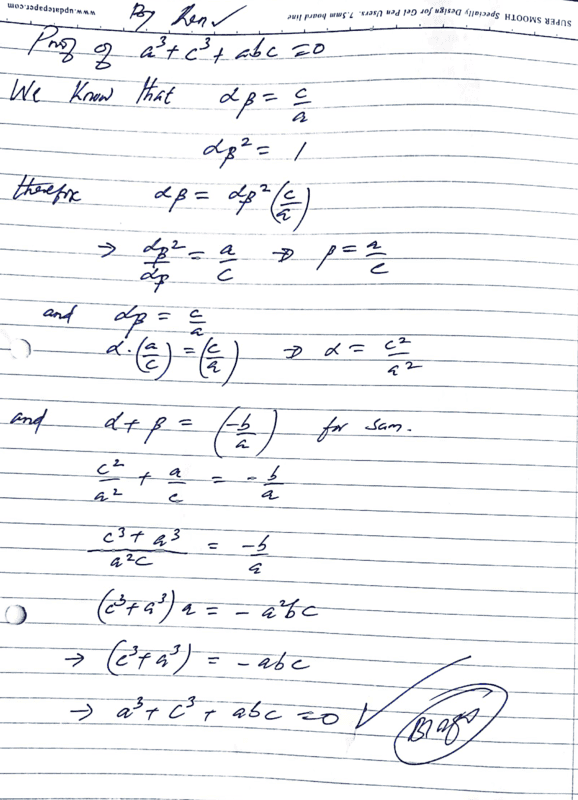 www.updatepaper.com
SUPER SMOOTH Specially Design for Gel Pen Users. 7.5mm board line
By Ken ✓
Proof of a³ + c³ + abc = 0
We Know that αβ = c/a
αβ² = 1
therefore αβ = αβ² (c/a)
⇒ αβ²/αβ = a/c ⇒ β = a/c
and αβ = c/a
α·(a/c) = (c/a) ⇒ α = c²/a²
and α + β = (-b/a) for sum.
c²/a² + a/c = -b/a
c³ + a³/a²c = -b/a
(c³ + a³) a = - a²bc
→ (c³ + a³) = - abc
→ a³ + c³ + abc = 0 ✓